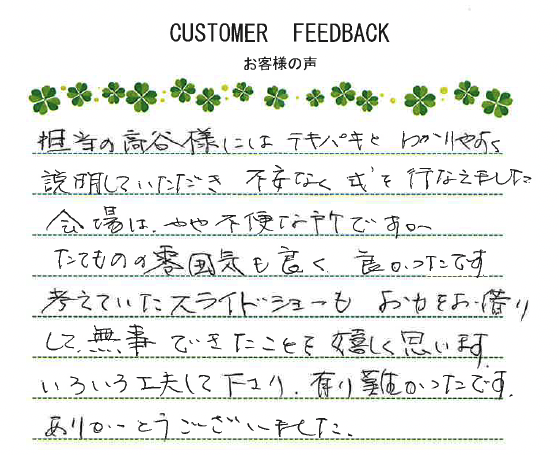 CUSTOMER FEEDBACK
お客様の声
担当の高谷様には テキパキと わかりやすく
説明していただき 不安なく 式を行なえました
会場は、やや不便な所ですが
たてものの雰囲気も良く 良かったです
考えていたスライドショーも お力をお借り
して、無事できたことを嬉しく思います。
いろいろ工夫して下さり、有り難かったです。
ありがとうございました。